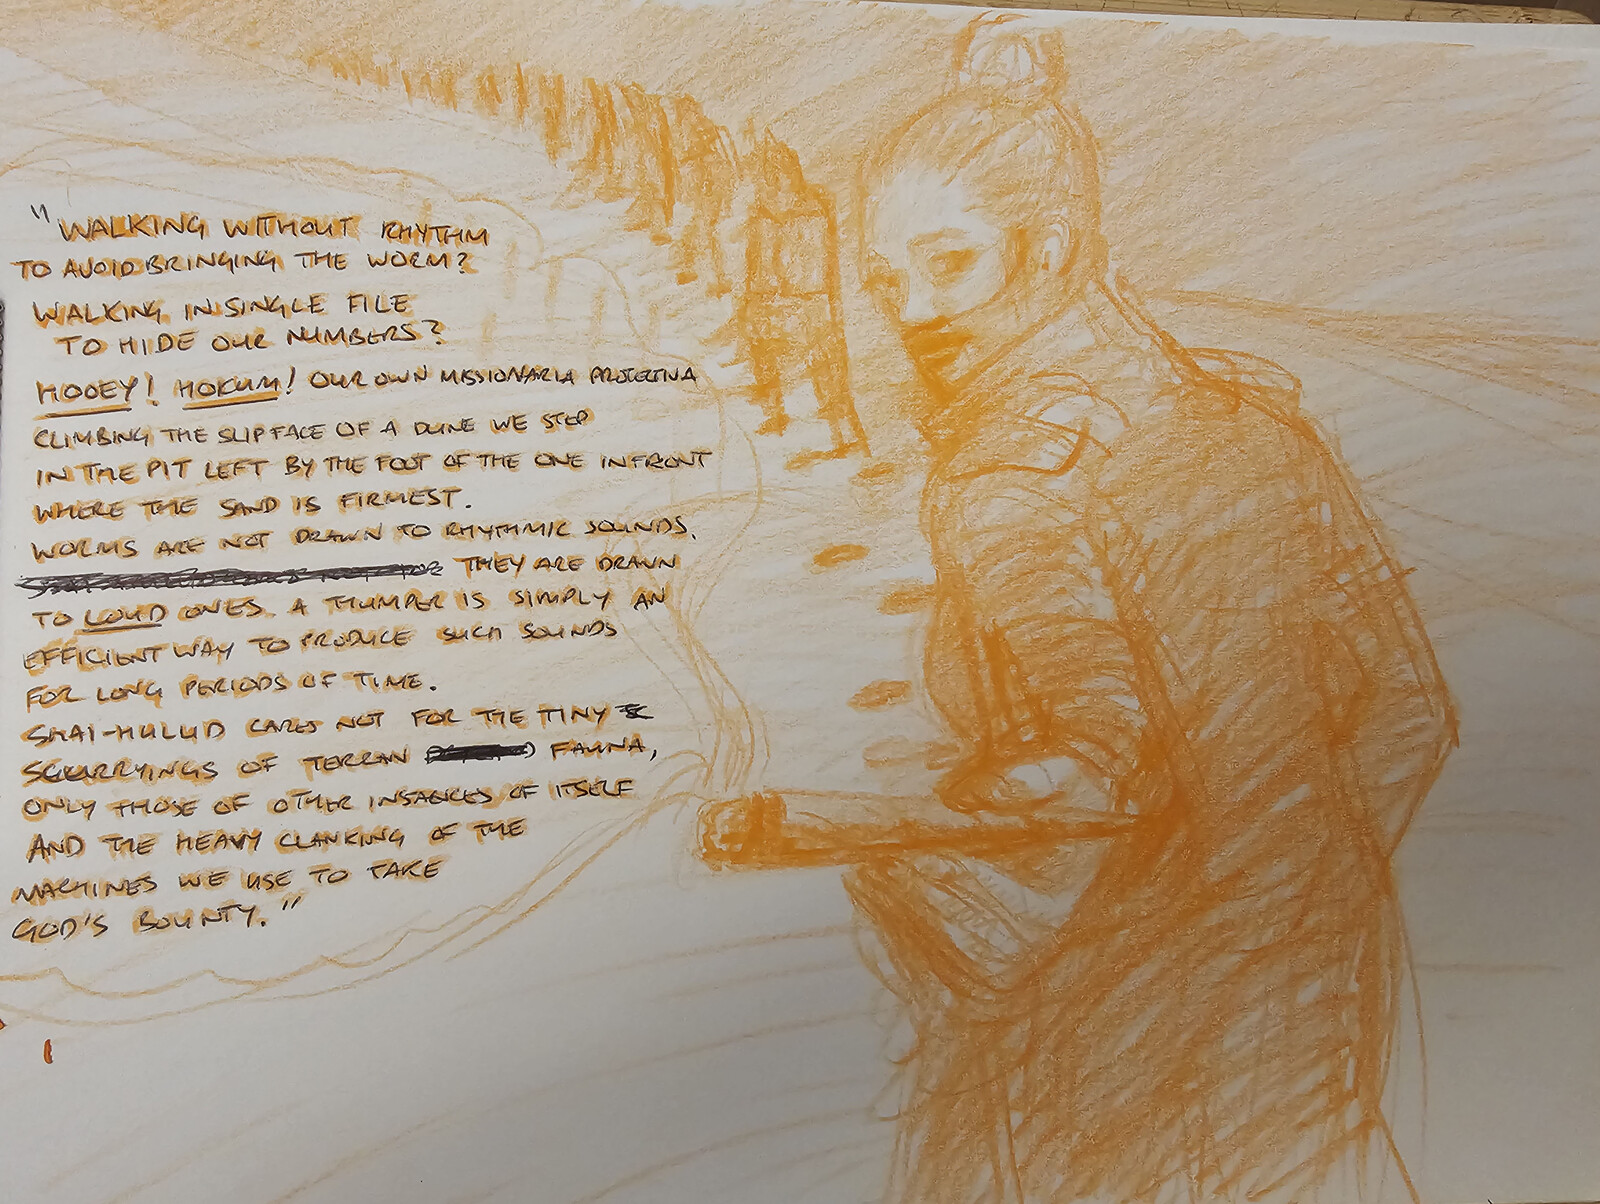 "WALKING WITHOUT RHYTHM
TO AVOID BRINGING THE WORM?
WALKING IN SINGLE FILE
TO HIDE OUR NUMBERS?
HOOEY! HOKUM! OUR OWN MISSIONARIA PROTECTIVA
CLIMBING THE SLIPFACE OF A DUNE WE STEP
IN THE PIT LEFT BY THE FOOT OF THE ONE IN FRONT
WHERE THE SAND IS FIRMEST.
WORMS ARE NOT DRAWN TO RHYTHMIC SOUNDS.
THEY ARE DRAWN
TO LOUD ONES. A THUMPER IS SIMPLY AN
EFFICIENT WAY TO PRODUCE SUCH SOUNDS
FOR LONG PERIODS OF TIME.
SHAI-HULUD CARES NOT FOR THE TINY
SCURRYINGS OF TERRAN FAUNA,
ONLY THOSE OF OTHER INSTANCES OF ITSELF
AND THE HEAVY CLANKING OF THE
MACHINES WE USE TO TAKE
GOD'S BOUNTY."